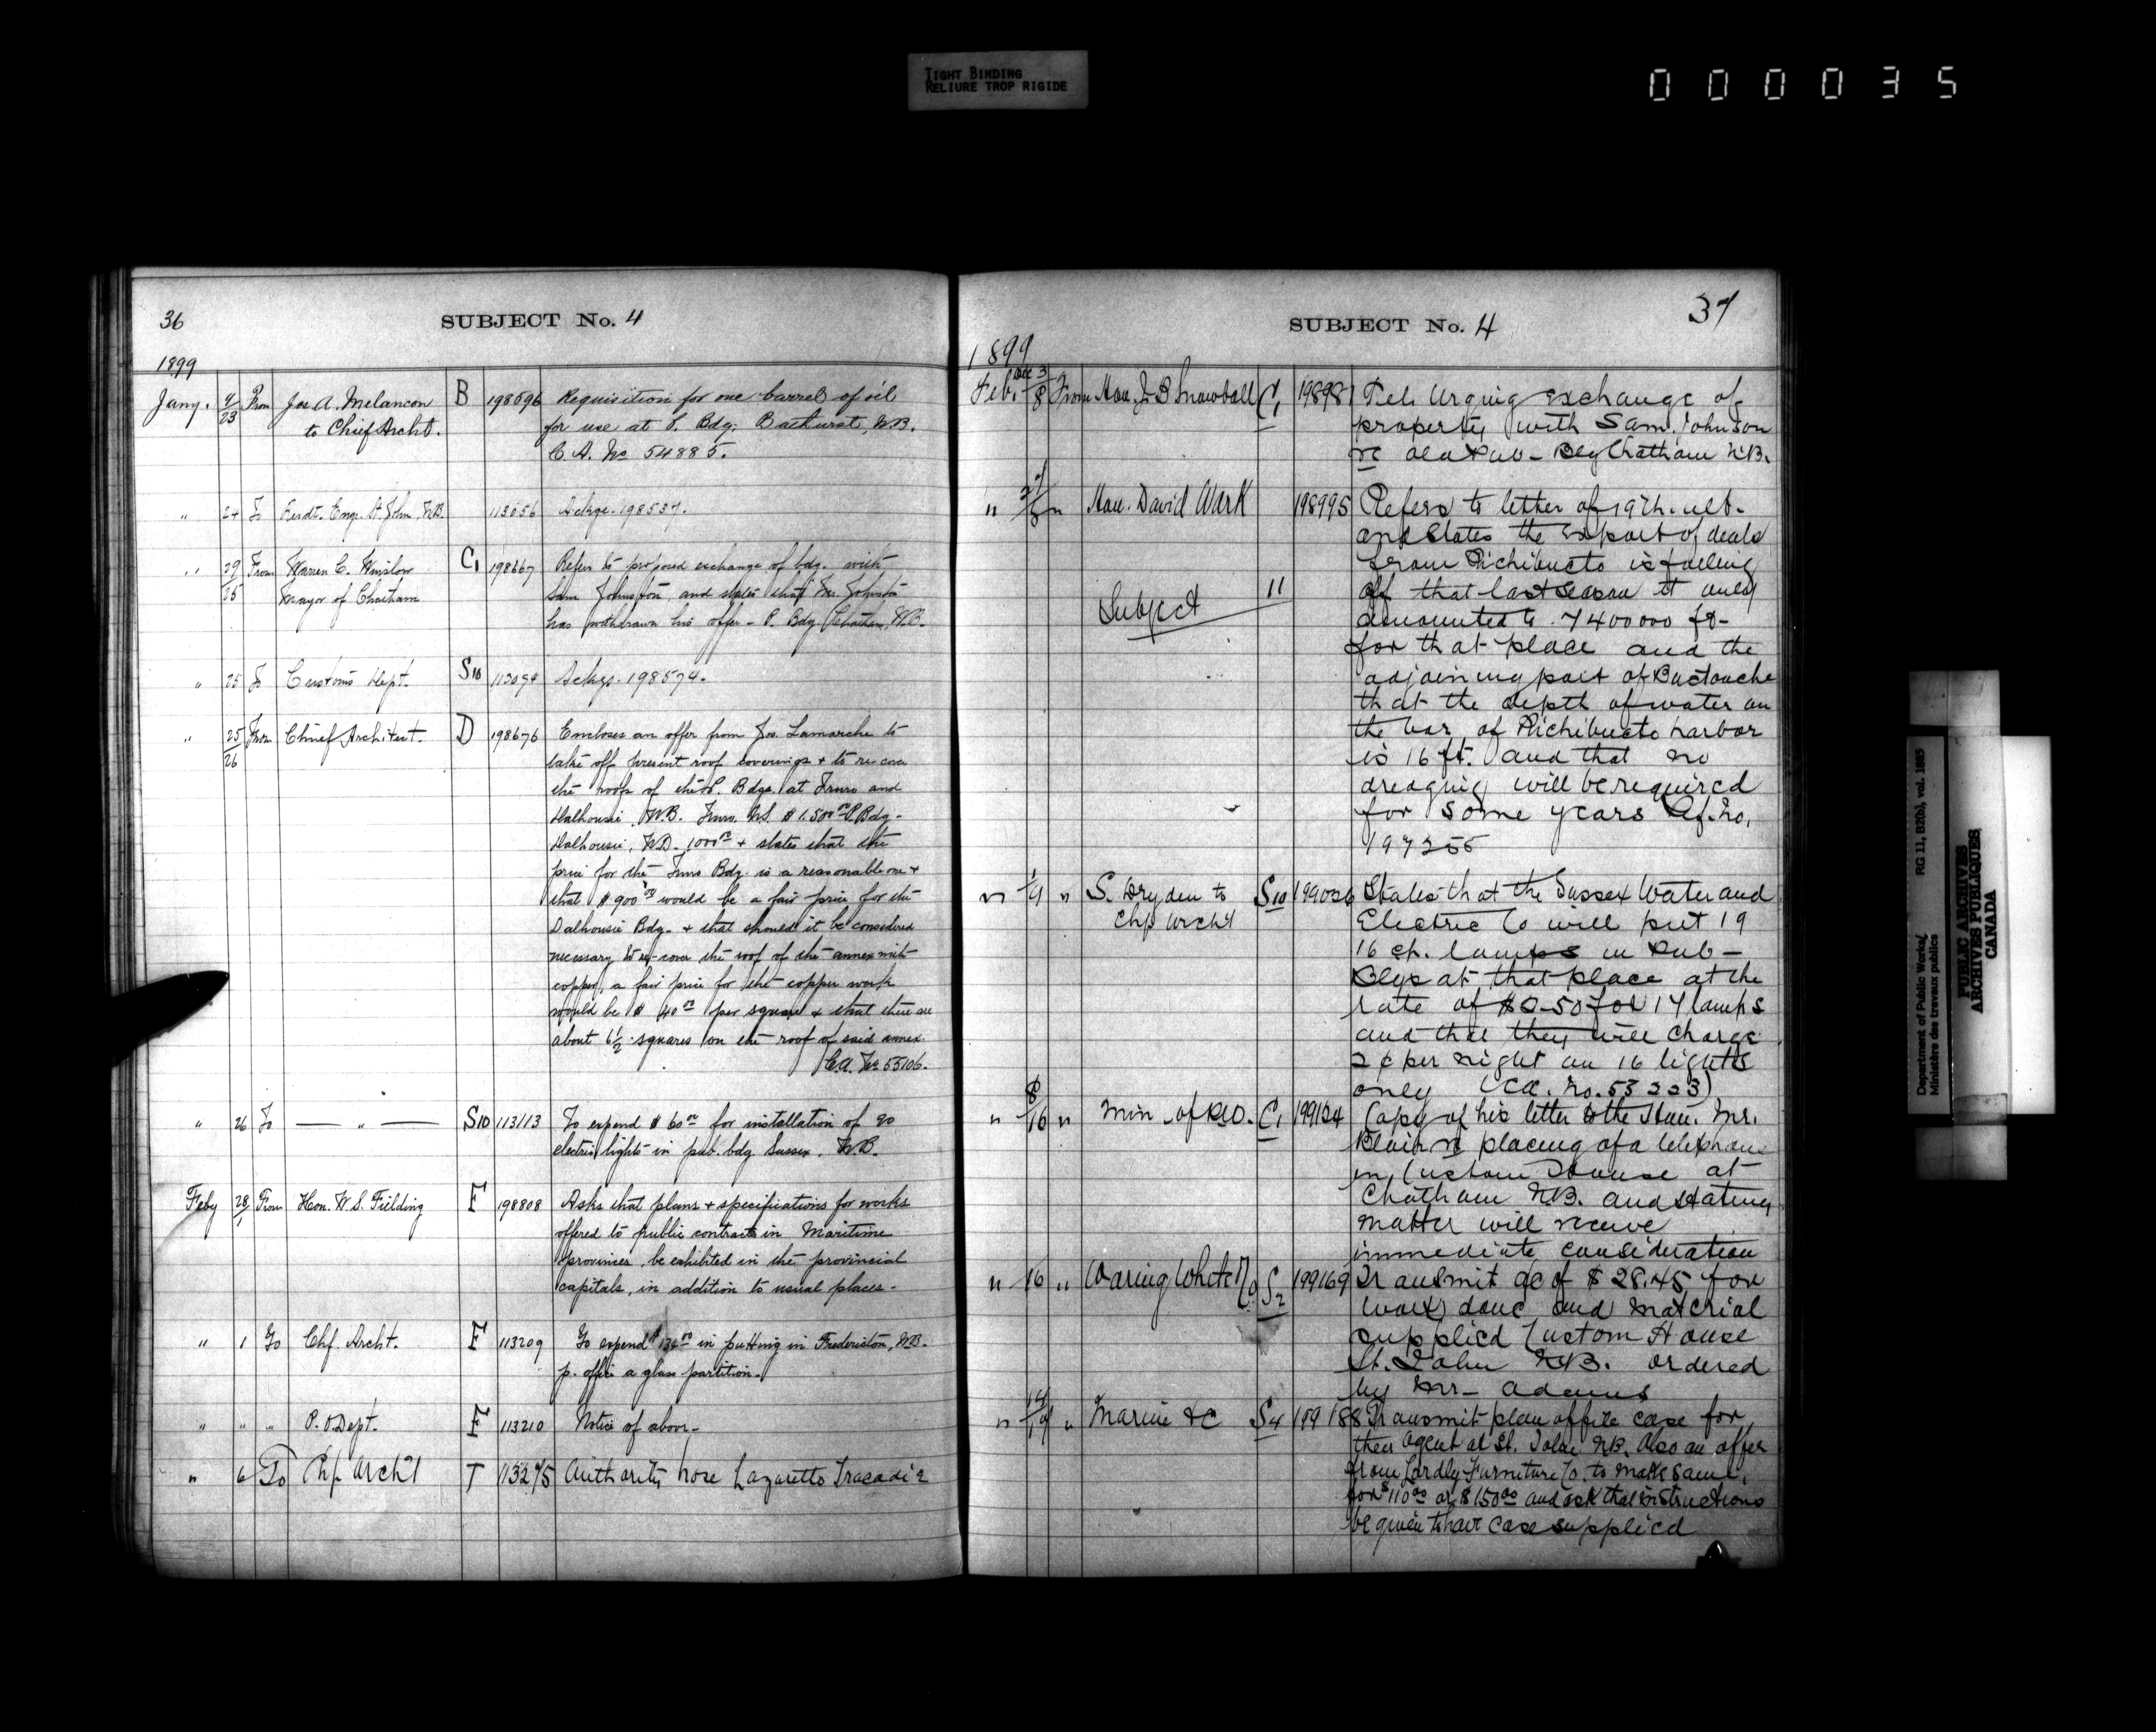 TIGHT BINDING
RELIURE TROP RIGIDE
000035
36
SUBJECT No. 4
1899
Jany. 9/23 From Jos A. Melancon B 198596 Requisition for one barrel of oil
to Chief Archt. for use at P. Bdg. Bathurst, N.B.
C.A. No 54885.
" 24 To Resdt. Engr. St. John, N.B. 113056 Ackge. 198537.
" 29/25 From Warren C. Winslow C1 198667 Refers to proposed exchange of bdg. with
Mayor of Chatham Sam Johnston, and states that Mr. Johnston
has withdrawn his offer - P. Bdg. Chatham, N.B.
" 25 To Customs Dept. S10 113094 Ackge. 198574.
" 25/26 From Chief Architect. D 198676 Encloses an offer from Jos. Lamarche to
take off present roof coverings + to re-cover
the roofs of the P. Bdgs. at Truro and
Dalhousie, N.B. Truro, N.S. $1.500.00 P. Bdg-
Dalhousie, N.B. 1000.00 + states that the
price for the Truro Bdg. is a reasonable one +
that $900.00 would be a fair price for the
Dalhousie Bdg. + that should it be considered
necessary to re-cover the roof of the annex with
copper, a fair price for the copper work
would be $40.00 per square + that there are
about 6 1/2 squares on the roof of said annex.
C.A. No 55106.
" 26 To — " — S10 113113 To expend $60.00 for installation of 20
electric lights in pub. bdg. Sussex. N.B.
Feby 28/1 From Hon. W. S. Fielding F 198808 Asks that plans + specifications for works
offered to public contract in Maritime
provinces, be exhibited in the provincial
capitals, in addition to usual places.
" 1 To Chf. Archt. F 113209 To expend $134.00 in putting in Fredericton, N.B.
p. office a glass partition.
" " " P. O Dept. F 113210 Notice of above-
" 6 To Chf Archt T 113275 Authority hose Lazaretto Tracadie
37
SUBJECT No. 4
1899
Dec 3
Feb. 8 From Hon. J. B Snowball C1 198981 Tel. Urging exchange of
property with Sam. Johnson
re old Pub- Bdg Chatham N.B.
" " Hon. David Wark 198995 Refers to letter of 19th. ult-
and states the export of deals
from Richibucto is falling
Subject 11 off that last season it only
amounted to 7400000 ft-
for that place and the
adjoining port of Buctouche
that the depth of water on
the bar of Richibucto harbor
is 16 ft. and that no
dredging will be required
for some years Rf. No.
197255
" 1/9 " S. Dryden to S10 199026 States that the Sussex Water and
Chf Archt Electric Co will put 19
16 cp. lamps in Pub-
Bdgs at that place at the
rate of $2-50 for 17 lamps
and that they will charge
2¢ per night on 16 lights
only (CA. No. 53223)
" 8/16 " Min. of P.W.D. C1 199124 Copy of his letter to the Hon. Mr.
Blair re placing of a telephone
in Custom House at
Chatham N.B. and stating
matter will receive
immediate consideration
" 16 " Waring White & Co S2 199169 Transmit a/c of $28.45 for
work done and material
supplied Custom House
St. John N.B. ordered
by Mr- Adams
" 14/17 " Marine &c S4 199188 Transmit plan of file case for
their Agent at St. John N.B. Also an offer
from Lordly Furniture Co. to make same
for $110.00 or $150.00 and ask that instructions
be given to have case supplied
Department of Public Works/ RG 11, B2(b), vol. 1885
Ministère des travaux publics
PUBLIC ARCHIVES
ARCHIVES PUBLIQUES
CANADA